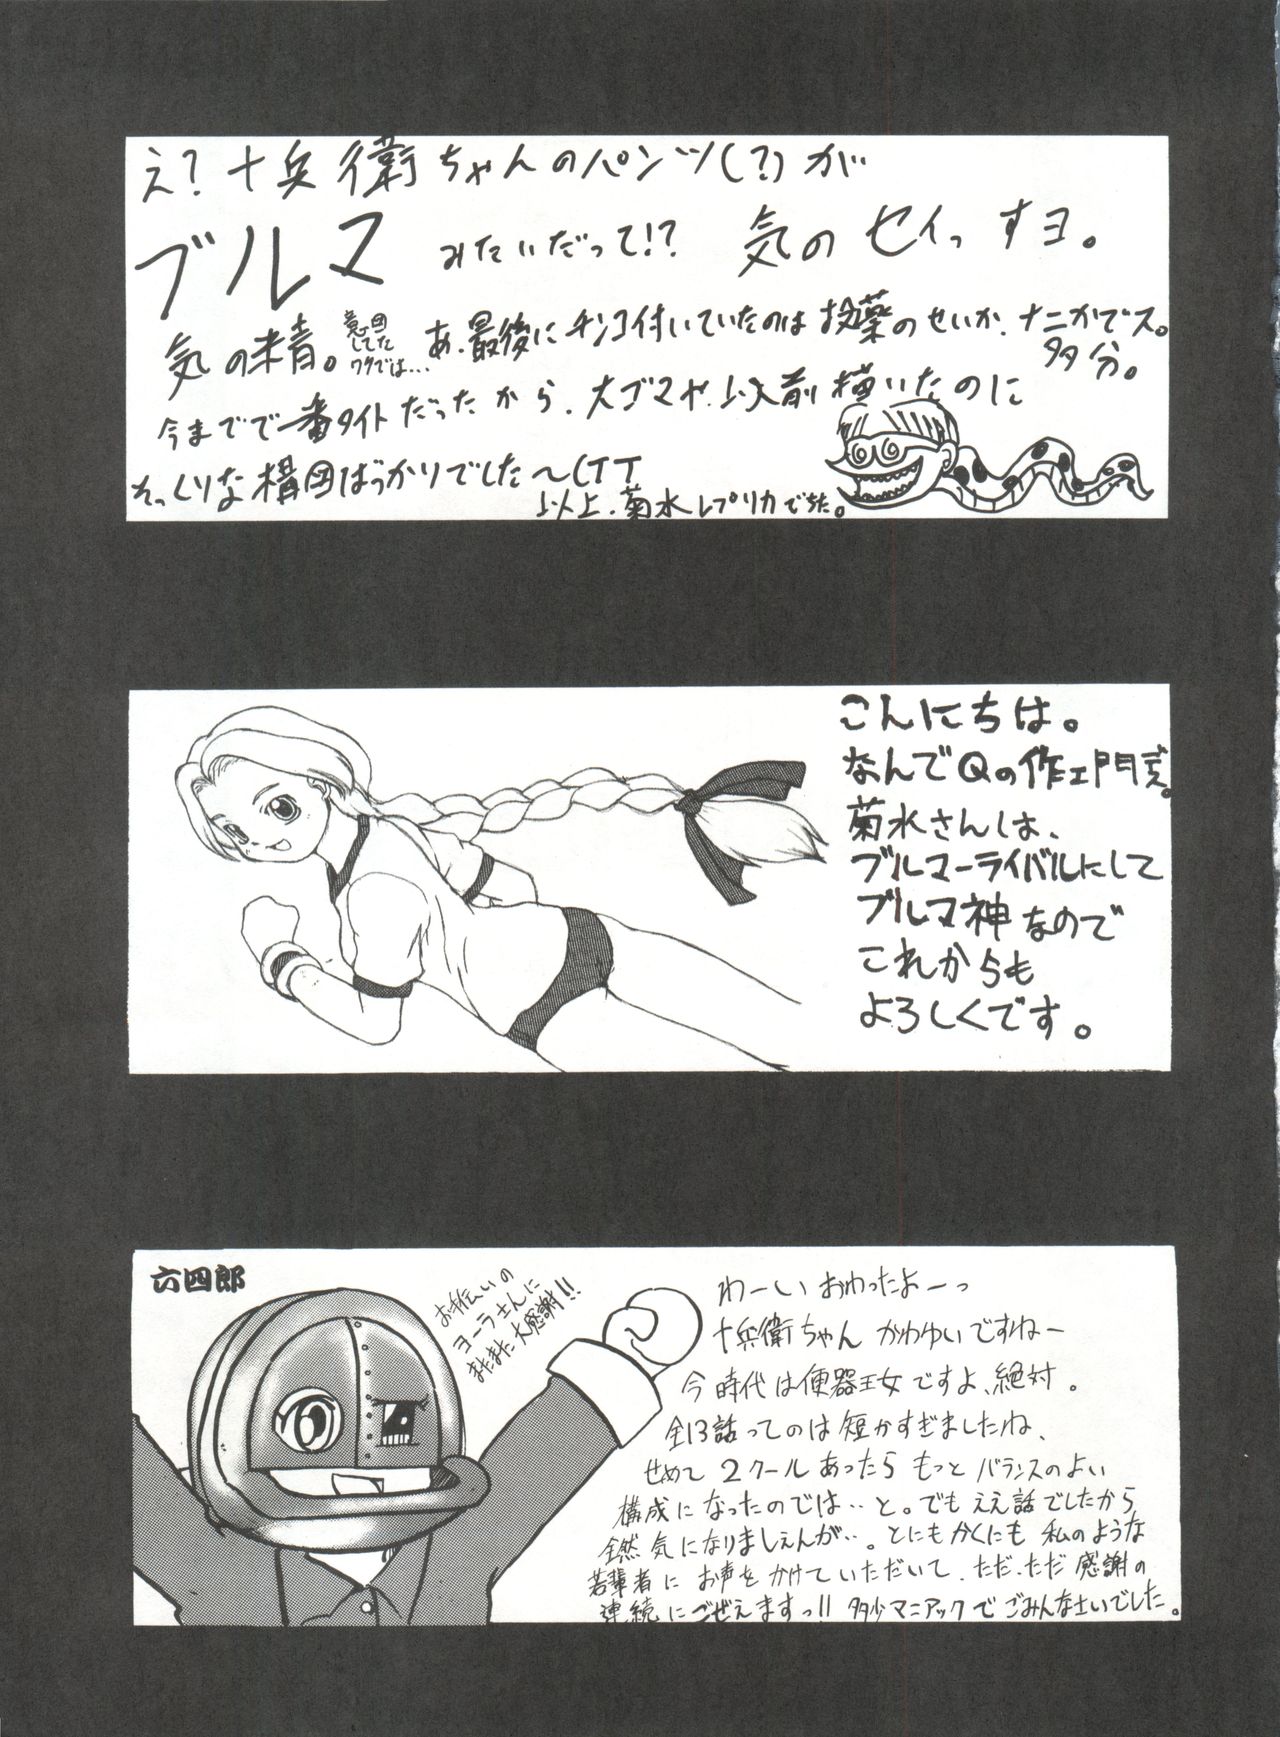 え?十兵衛ちゃんのパンツ(?)が
ブルマ みたいだって!? 気のセイっすヨ。
気の精。
意図
してた
ワケでは…
あ、最後にチンコ付いていたのは投薬のせいか、ナニかでス。
多分。
今までで一番タイトだったから、大ゴマや、以前描いたのに
そっくりな構図ばっかりでした〜(TT
以上、菊水レプリカでした。
こんにちは。
なんでQの作ェ門式。
菊水さんは、
ブルマーライバルにして
ブルマ神なので
これからも
よろしくです。
六四郎
お手伝いの
ヨーラさんに
またまた大感謝!!
わーい おわったよーっ
十兵衛ちゃん かわゆいですねー
今時代は便器王女ですよ、絶対。
全13話ってのは短かすぎましたね、
せめて2クールあったら もっと バランスのよい
構成になったのでは‥と。でもええ話でしたから
全然気になりましぇんが‥。とにもかくにも 私のような
若輩者に お声をかけていただいて、ただ、ただ感謝の
連続にごぜえますっ!! 多少マニアックでごみんなさいでした。